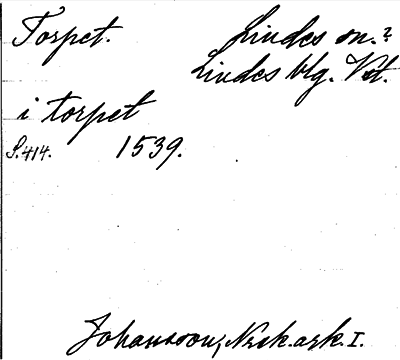 Torpet. Lindes sn.?
Lindes blg. Vstm.
i torpet
S.414. 1539.
Johansson, Nrk.ark. I.